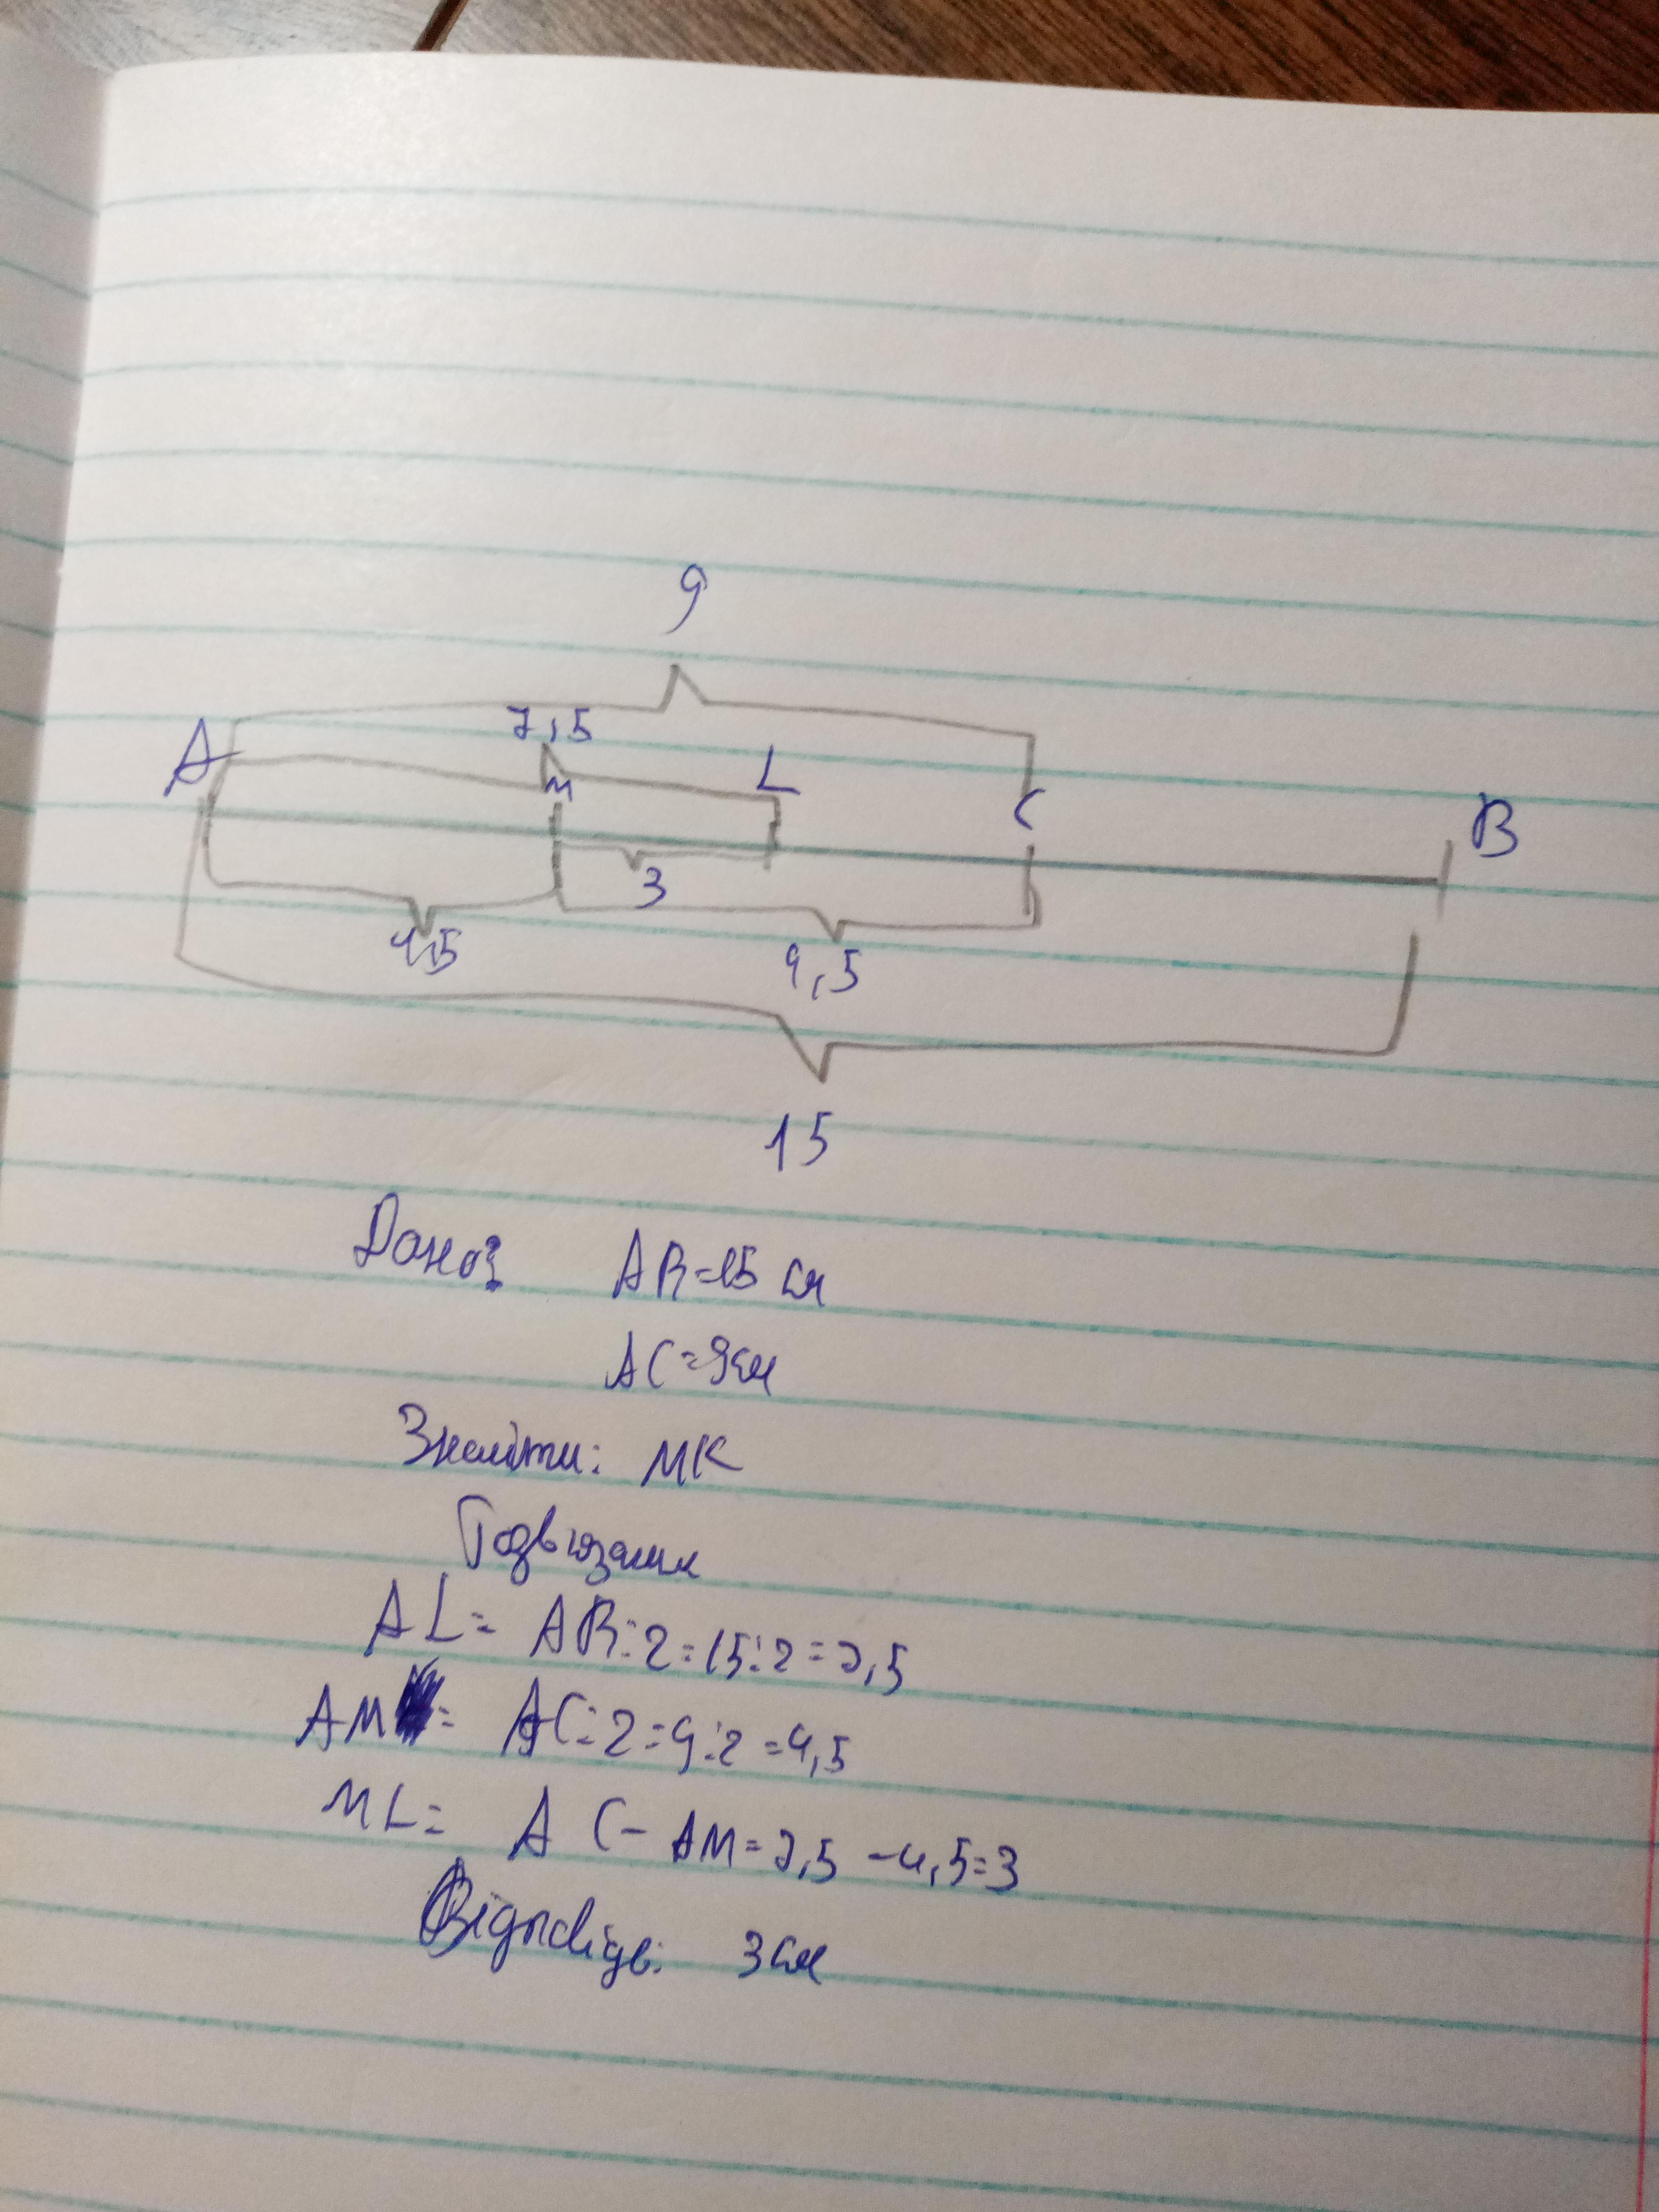 9
7,5
A м L C B
3
4,5 4,5
15
Дано: AB=15 см
AC=9см
Знайти: МК
Розв'язання
AL= AB:2=15:2=7,5
AM= AC:2=9:2=4,5
ML= AC-AM=7,5-4,5=3
Відповідь: 3см